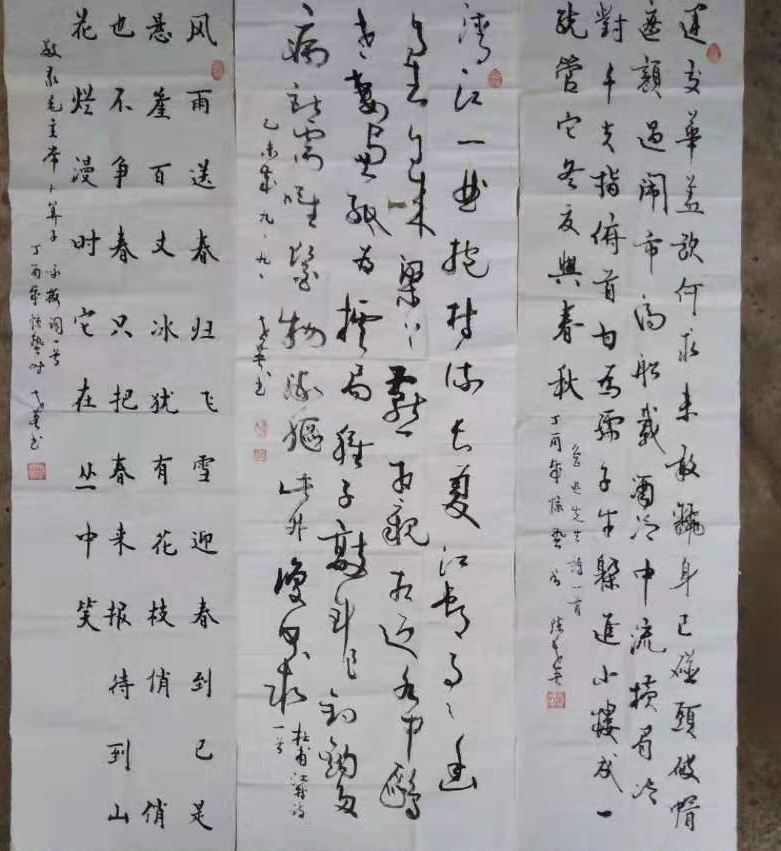 運交華蓋欲何求未敢翻身已碰頭破帽
遮顏過鬧市漏船載酒泛中流橫眉冷
對千夫指俯首甘為孺子牛躲進小樓成一
統管它冬夏與春秋
魯迅先生詩一首
丁酉年惊蛰
清江一曲抱村流长夏江村事〻幽
自去自来梁上燕相親相近水中鷗
老妻畫紙為棋局稚子敲針作釣鉤多
病所需唯藥物微軀此外復何求
杜甫江村诗
一首
乙未年九、九、
风雨送春归飞雪迎春到已是
悬崖百丈冰犹有花枝俏俏
也不争春只把春来报待到山
花烂漫时它在丛中笑
敬录毛主席卜算子咏梅词一首
丁酉年惊蛰时